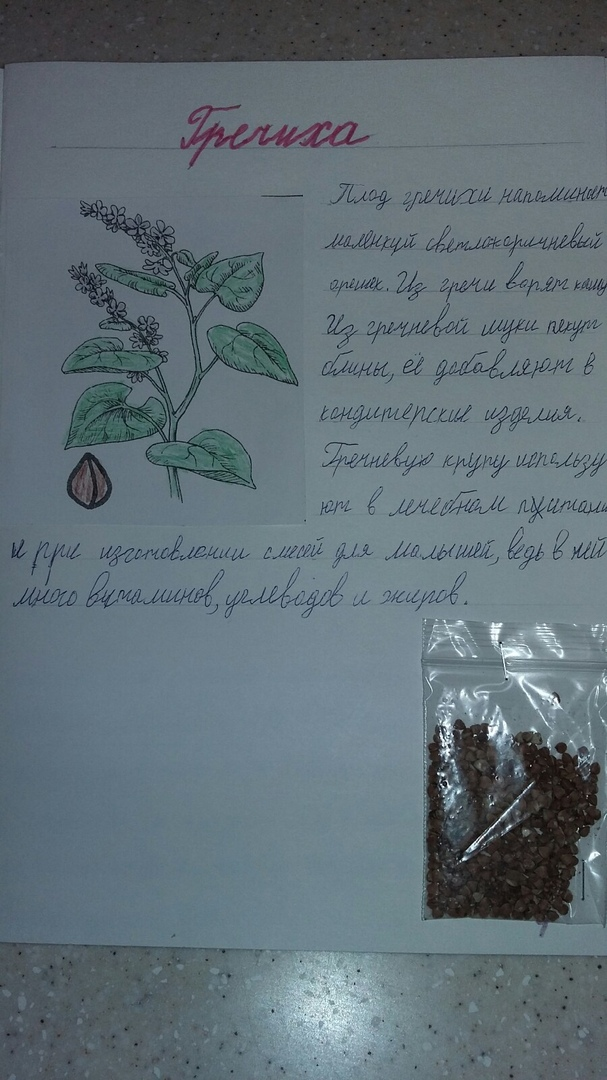 Гречиха
Плод гречихи напоминает
маленкий светлокоричневый
орешек. Из гречи варят кашу
Из гречневой муки пекут
блины, её добавляют в
кондитерские изделия.
Гречневую крупу использу
ют в лечебном питании
и при изготовлении смесей для малышей, ведь в ней
много витаминов, углеводов и жиров.